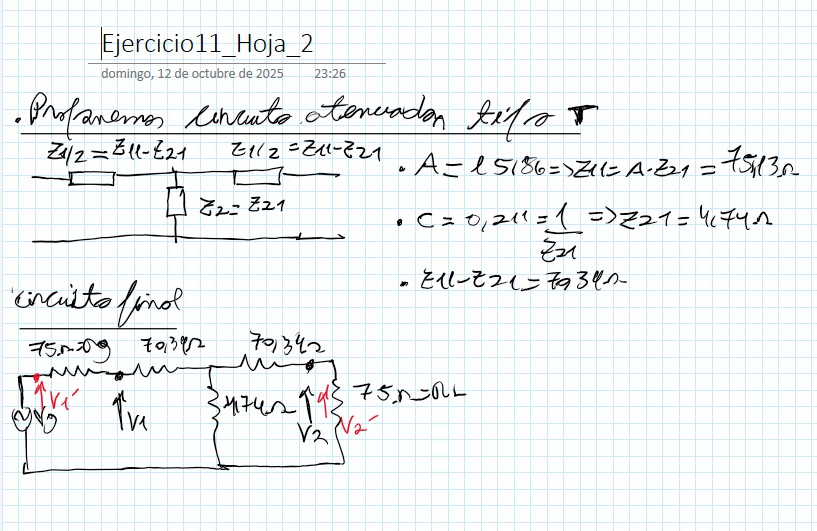 Ejercicio11_Hoja_2
domingo, 12 de octubre de 2025 23:26
. Proponemos circuito atenuador tipo T
Z1/2 = Z11-Z21 Z1/2 = Z11-Z21
Z2 = Z21
. A = 15,86 => Z11 = A·Z21 = 75,13Ω
. C = 0,211 = 1/Z21 => Z21 = 4,74Ω
. Z11-Z21 = 70,34Ω
circuito final
75Ω=Rg 70,34Ω 70,34Ω
4,74Ω 75Ω=RL
Vg V1' V1 V2 V2'